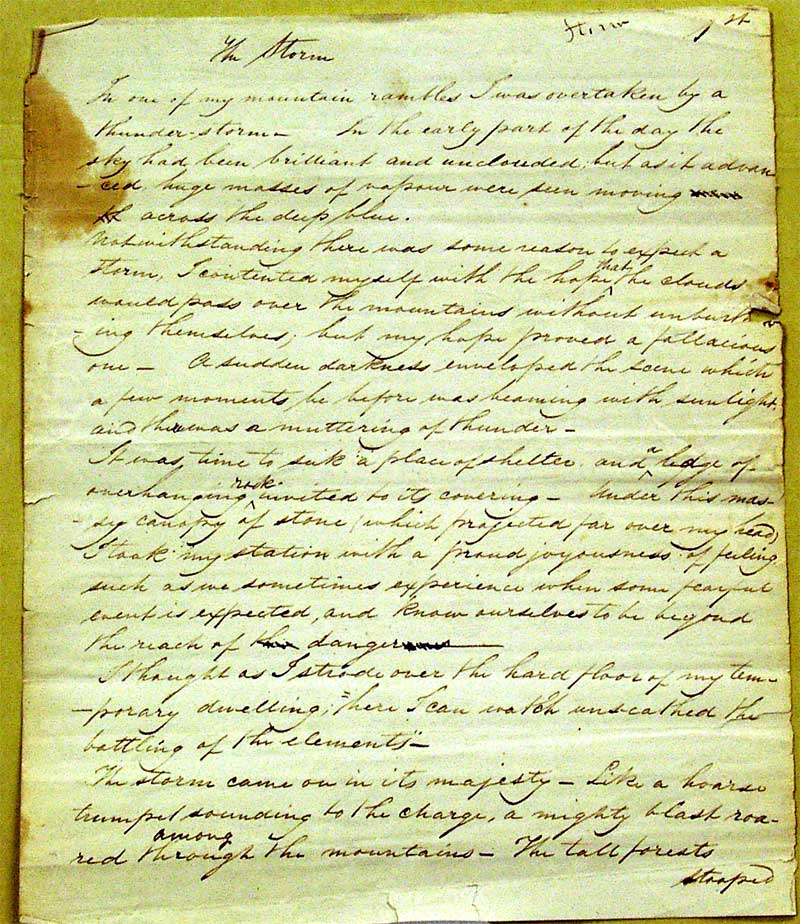 Storm 1st
The Storm
In one of my mountain rambles I was overtaken by a
thunder-storm — In the early part of the day the
sky had been brilliant and unclouded; but as it advan-
-ced huge masses of vapour were seen moving
th across the deep blue.
Notwithstanding there was some reason to expect a
storm, I contented myself with the hope that the clouds
would pass over the mountains without unburth
-ing themselves; but my hope proved a fallacious
one — A sudden darkness enveloped the scene which
a few moments be before was beaming with sunlight,
and there was a muttering of thunder —
It was, time to seek a place of shelter. and a ledge of
overhanging rock invited to its covering — Under this mas-
-sy canopy of stone (which projected far over my head)
I took my station with a proud joyousness of feeling
such as we sometimes experience when some fearful
event is expected, and know ourselves to be beyond
the reach of the danger
I thought as I strode over the hard floor of my tem-
-porary dwelling; "here I can watch unscathed the
battling of the elements" —
The storm came on in its majesty — Like a hoarse
trumpet sounding to the charge, a mighty blast roa-
red through among the mountains — The tall forests
stooped